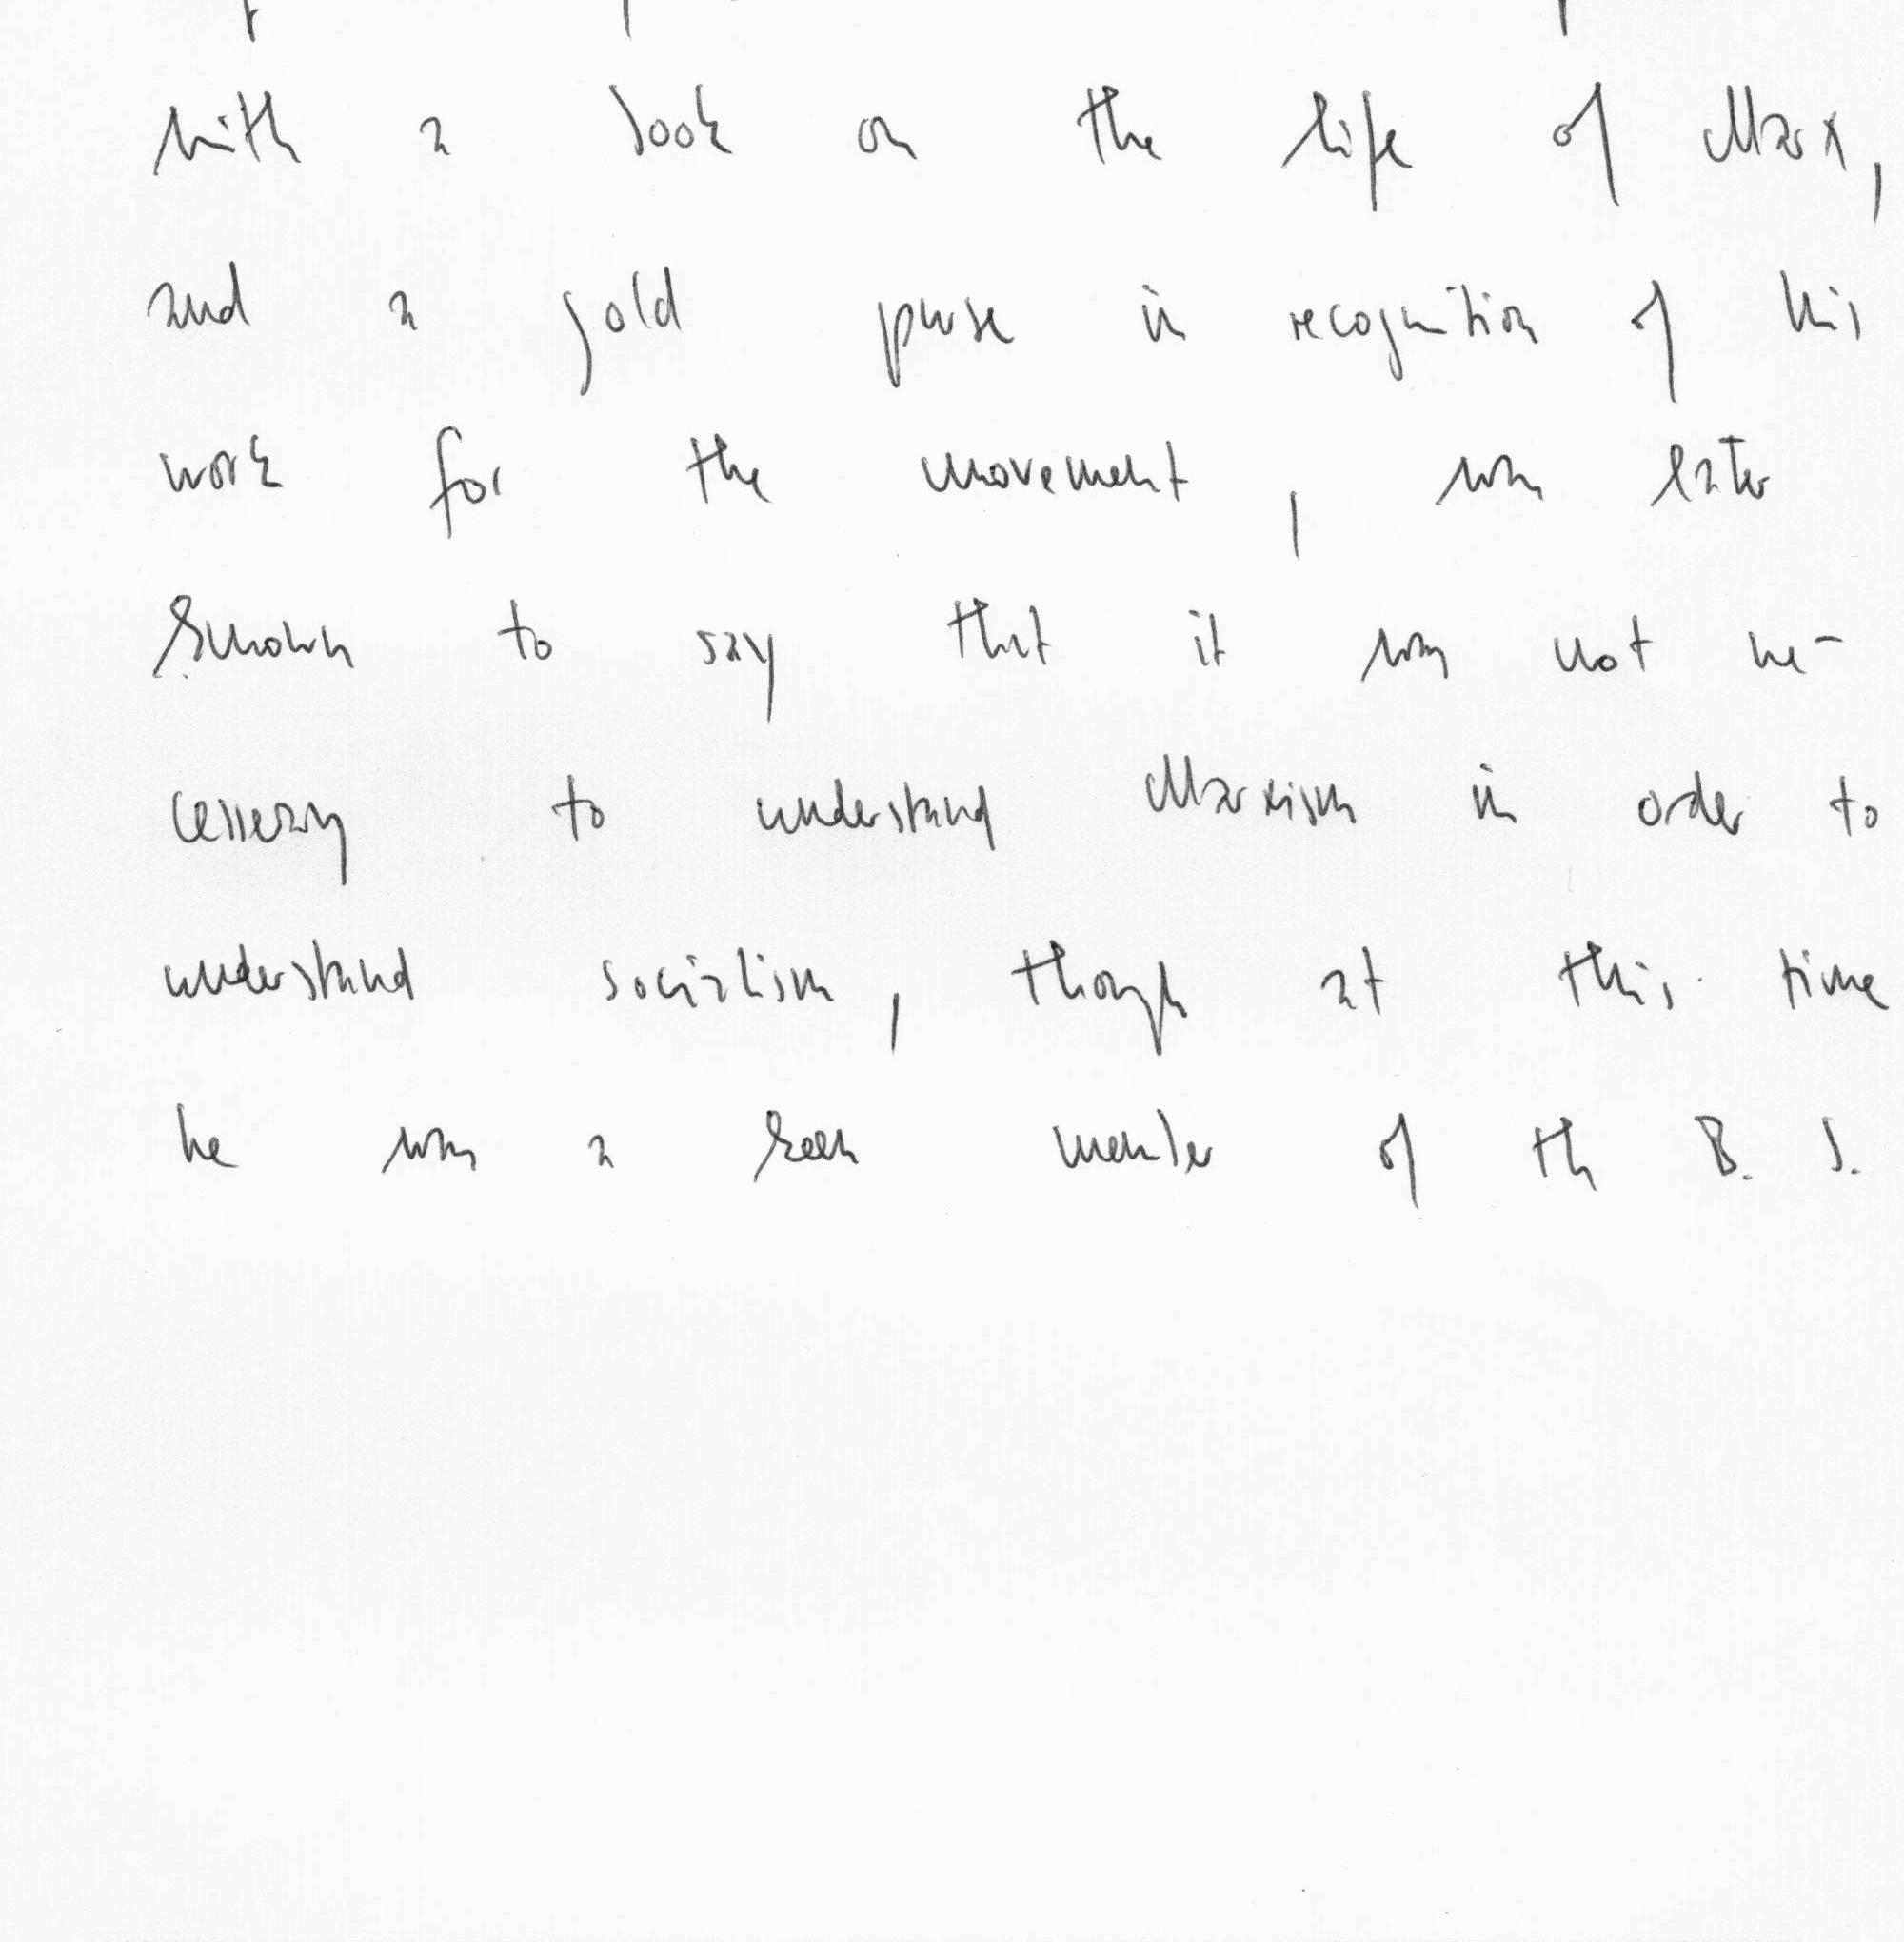 with a book on the life of Marx,
and a gold purse in recognition of his
work for the movement, was later
known to say that it was not ne-
cessary to understand Marxism in order to
understand socialism, though at this time
he was a keen member of the B. S.